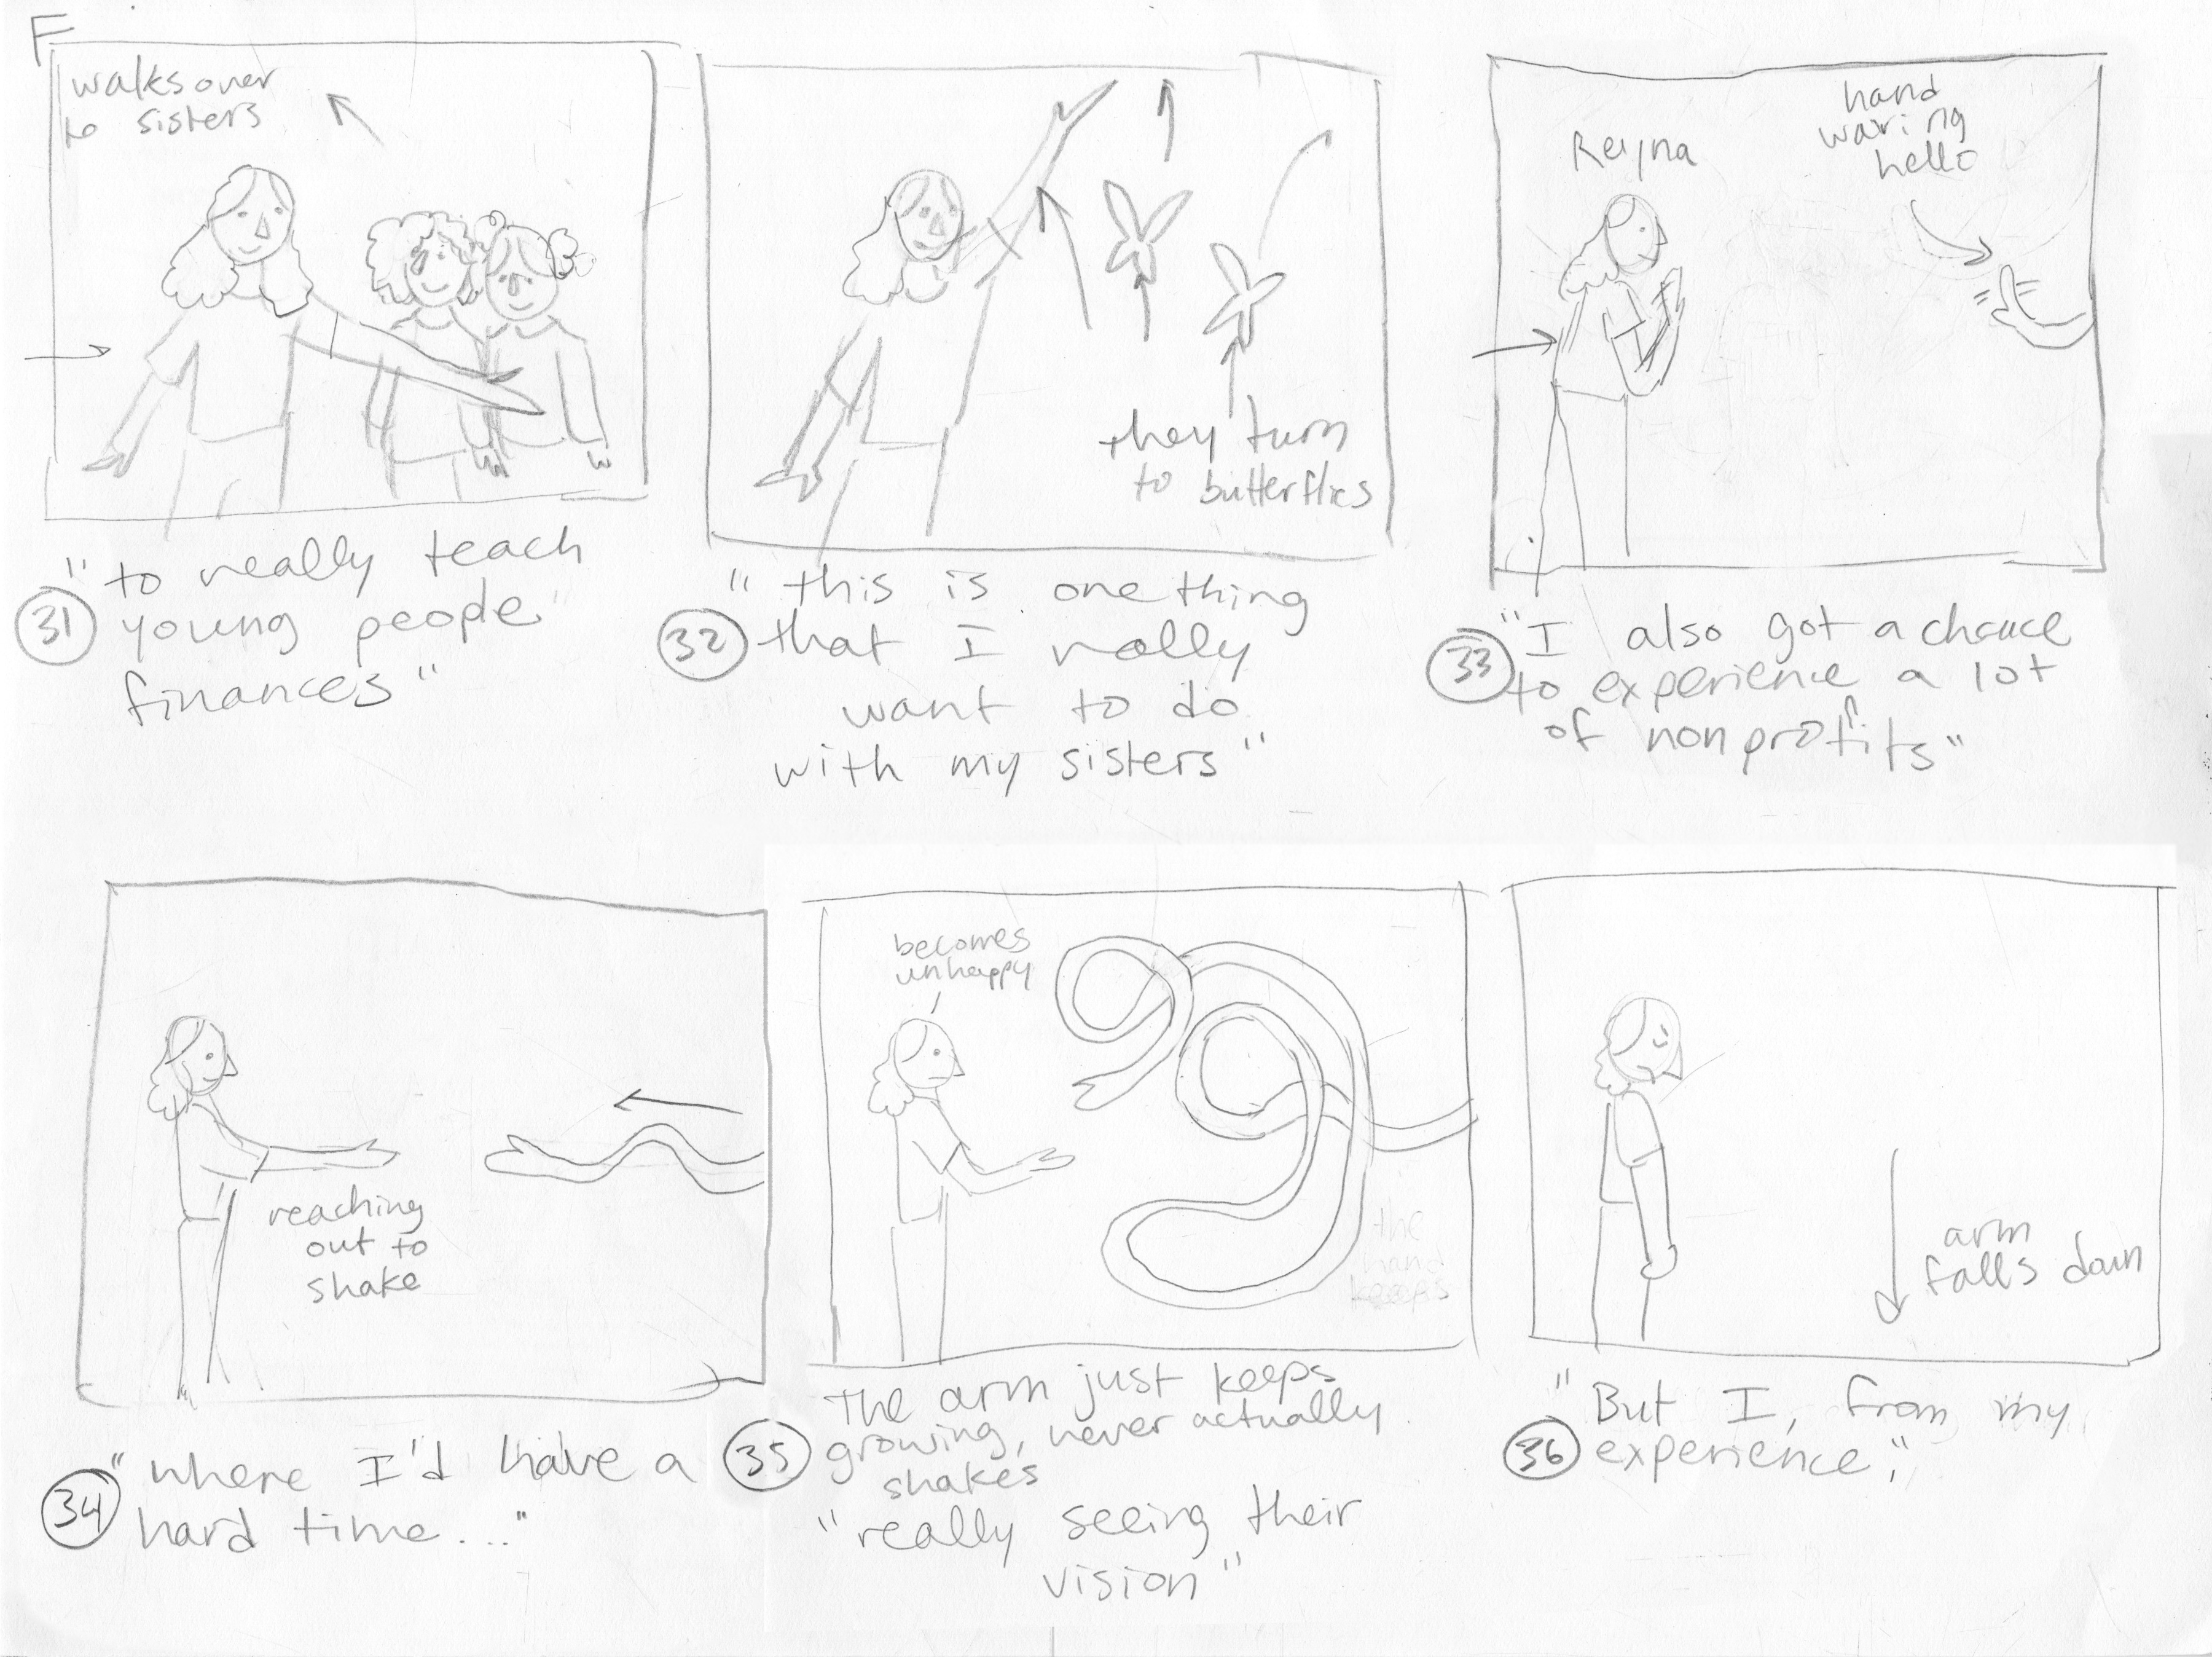 F
walks over
to sisters
"to really teach
31 young people
finances"
they turn
to butterflies
"this is one thing
32 that I really
want to do
with my sisters"
Reyna
hand
waving
hello
"I also got a chance
33 to experience a lot
of nonprofits"
reaching
out to
shake
"where I'd have a
34 hard time..."
becomes
unhappy
the
hand
keeps
The arm just keeps
35 growing, never actually
shakes
"really seeing their
vision"
arm
falls down
"But I, from my
36 experience,"